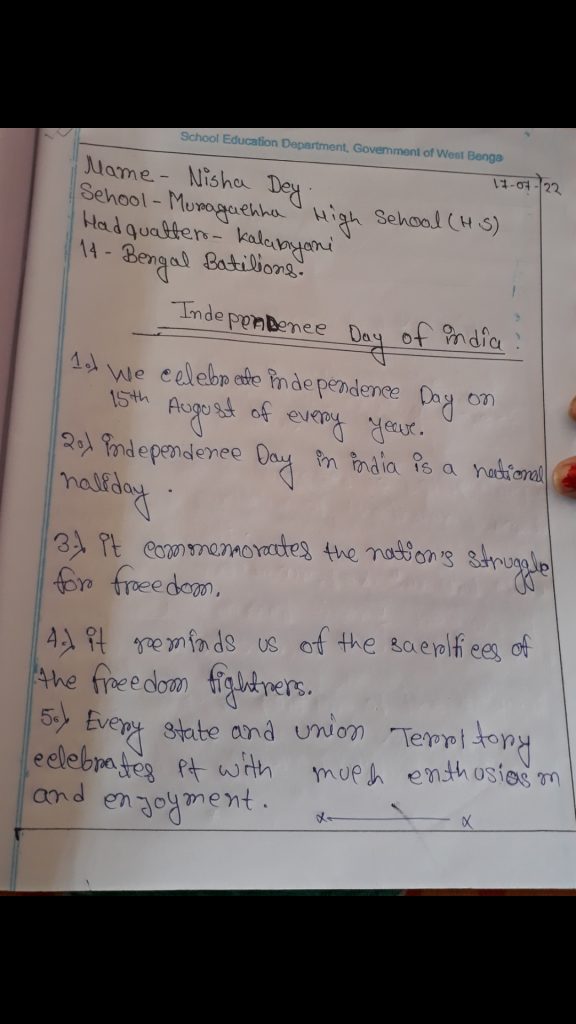 School Education Department, Government of West Benga
17-07-22
Name - Nisha Dey.
School - Muragachha High School (H.S)
Hadquatter - Kalabyani
14 - Bengal Batilions.
Independence Day of india.
1.) We celebrate independence Day on
15th August of every year.
2.) independence Day in india is a national
haliday.
3.) it commemorates the nation's struggle
for freedom.
4.) it reminds us of the sacrifices of
the freedom fightners.
5.) Every state and union Territory
celebrates it with much enthusiasm
and enjoyment.